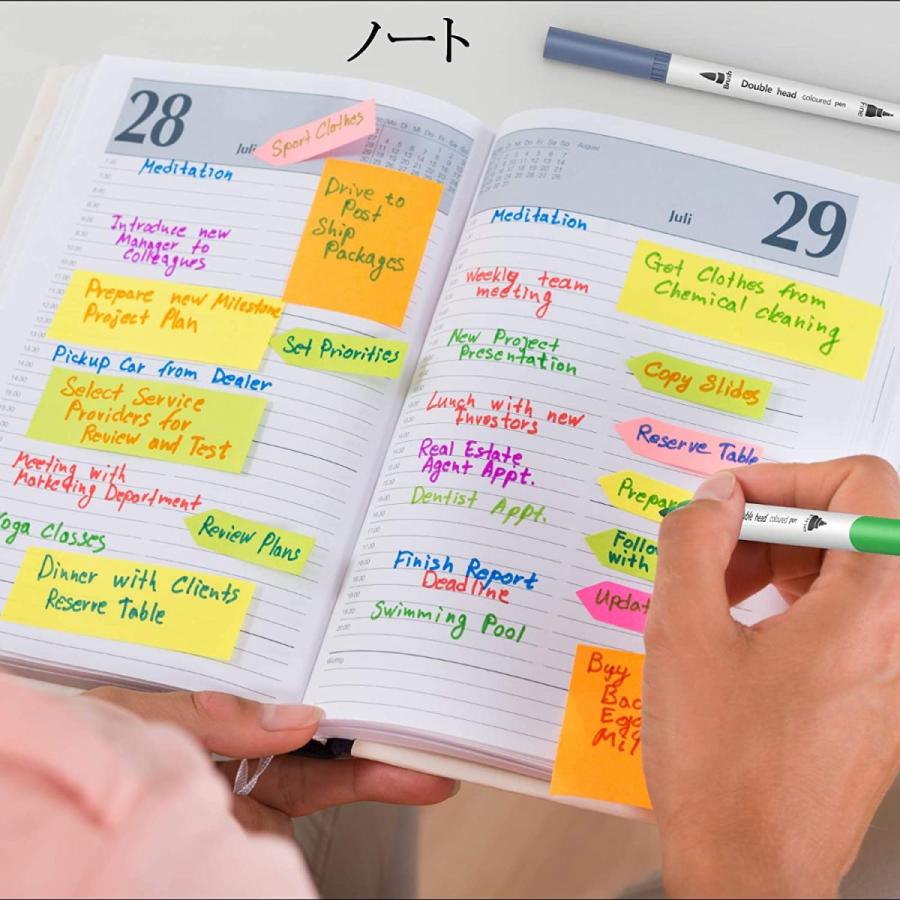 ノート
Brush
Double head coloured pen
Fine
28
Juli
Sport Clothes
Meditation
Drive to
Post
Ship
Packages
Introduce new
Manager to
Colleagues
Prepare new Milestone
Project Plan
Set Priorities
Pickup Car from Dealer
Select Service
Providers for
Review and Test
Meeting with
Marketing Department
Yoga Classes
Review Plans
Dinner with Clients
Reserve Table
August
Juli
29
Meditation
Get Clothes from
Chemical cleaning
Weekly team
meeting
New Project
Presentation
Copy Slides
Lunch with new
Investors
Reserve Table
Real Estate
Agent Appt.
Prepar
Dentist Appt.
Follo
with
Finish Report
Deadline
Updat
Swimming Pool
Buy
Bac
Egg
Mil
head coloured pen